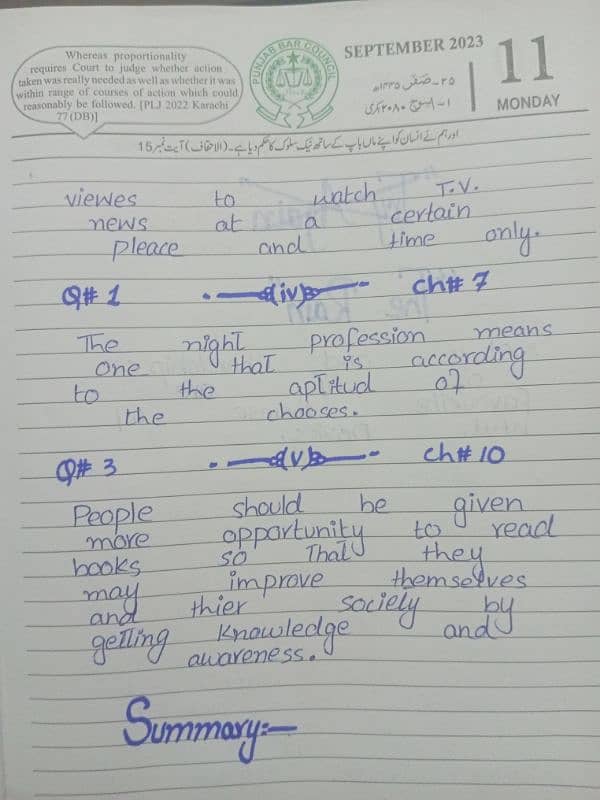 Whereas proportionality
requires Court to judge whether action
taken was really needed as well as whether it was
within range of courses of action which could
reasonably be followed. [PLJ 2022 Karachi
77 (DB)]
PUNJAB BAR COUNCIL
SEPTEMBER 2023
11
MONDAY
اور ہم نے انسان کو اپنے ماں باپ کے ساتھ نیک سلوک کا حکم دیا ہے۔ (الاحقاف) آیت نمبر 15
viewes to watch T.V.
news at a certain
pleace and time only.
Q# 1 (iv) Ch# 7
The night profession means
one that is according
to the aptitud of
the chooses.
Q# 3 (v) Ch# 10
People should be given
more opportunity to read
books so That they
may improve themselves
and thier sociely by
getting knowledge and
awareness.
Summary:-